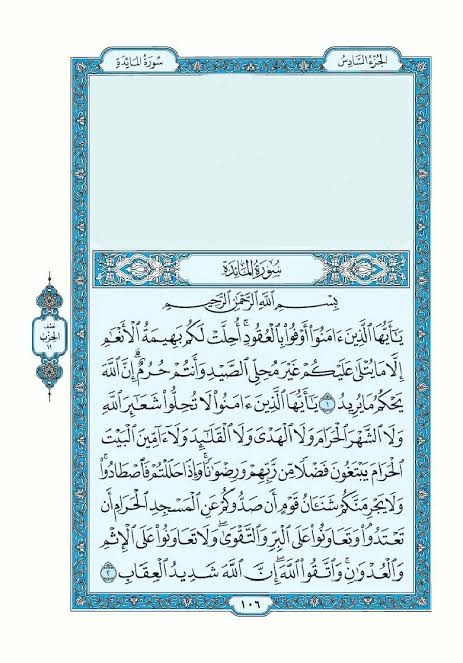 سُورَةُ المَائِدَةِ
الجُزْءُ السَّادِسُ
سُورَةُ المَائِدَةِ
بِسْمِ اللَّهِ الرَّحْمَٰنِ الرَّحِيمِ
يَٰٓأَيُّهَا ٱلَّذِينَ ءَامَنُوٓا۟ أَوْفُوا۟ بِٱلْعُقُودِ ۚ أُحِلَّتْ لَكُم بَهِيمَةُ ٱلْأَنْعَٰمِ
إِلَّا مَا يُتْلَىٰ عَلَيْكُمْ غَيْرَ مُحِلِّى ٱلصَّيْدِ وَأَنتُمْ حُرُمٌ ۗ إِنَّ ٱللَّهَ
يَحْكُمُ مَا يُرِيدُ ١ يَٰٓأَيُّهَا ٱلَّذِينَ ءَامَنُوا۟ لَا تُحِلُّوا۟ شَعَٰٓئِرَ ٱللَّهِ
وَلَا ٱلشَّهْرَ ٱلْحَرَامَ وَلَا ٱلْهَدْىَ وَلَا ٱلْقَلَٰٓئِدَ وَلَآ ءَآمِّينَ ٱلْبَيْتَ
ٱلْحَرَامَ يَبْتَغُونَ فَضْلًا مِّن رَّبِّهِمْ وَرِضْوَٰنًا ۚ وَإِذَا حَلَلْتُمْ فَٱصْطَادُوا۟ ۚ
وَلَا يَجْرِمَنَّكُمْ شَنَـَٔانُ قَوْمٍ أَن صَدُّوكُمْ عَنِ ٱلْمَسْجِدِ ٱلْحَرَامِ أَن
تَعْتَدُوا۟ ۘ وَتَعَاوَنُوا۟ عَلَى ٱلْبِرِّ وَٱلتَّقْوَىٰ ۖ وَلَا تَعَاوَنُوا۟ عَلَى ٱلْإِثْمِ
وَٱلْعُدْوَٰنِ ۚ وَٱتَّقُوا۟ ٱللَّهَ ۖ إِنَّ ٱللَّهَ شَدِيدُ ٱلْعِقَابِ ٢
نصف
الحزب
١١
١٠٦